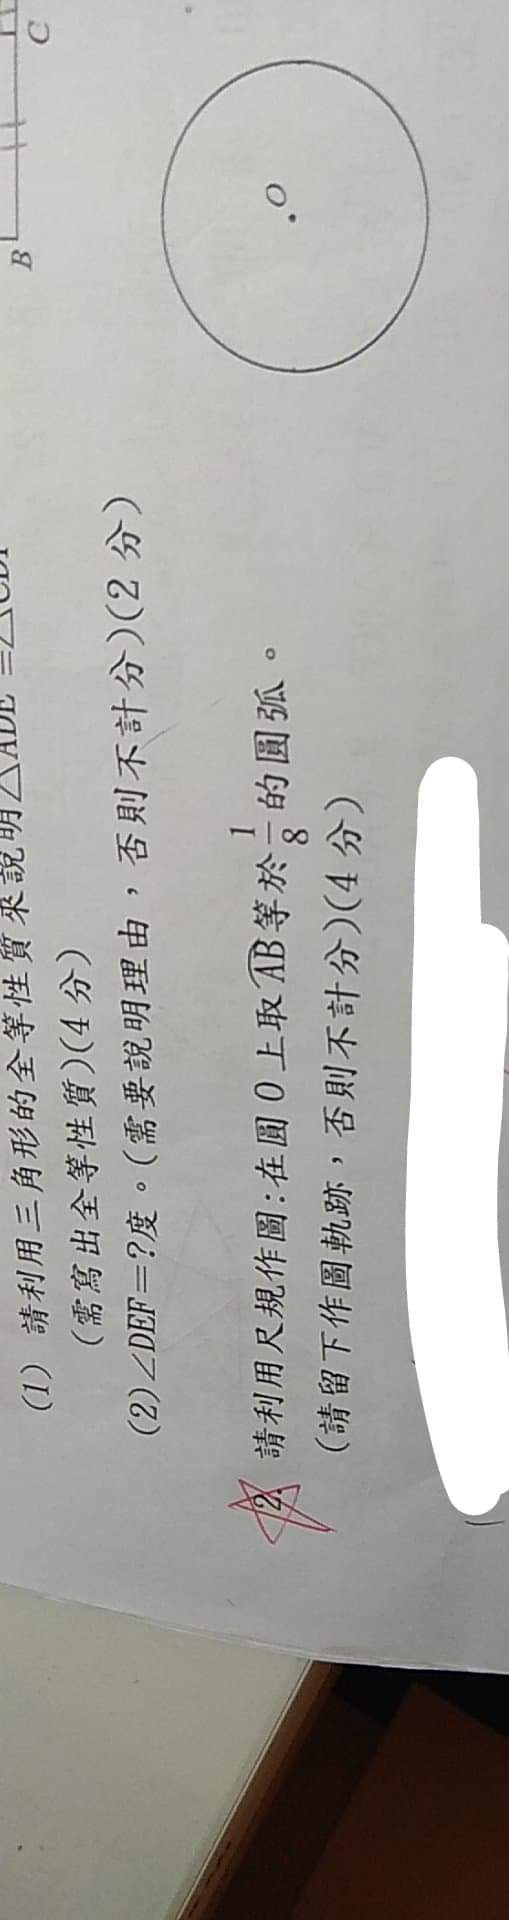 B
C
(1) 請利用三角形的全等性質來說明△ADE
(需寫出全等性質)(4分)
(2)∠DEF=?度。(需要說明理由，否則不計分)(2分)
2. 請利用尺規作圖:在圓O上取AB等於1/8的圓弧。
(請留下作圖軌跡，否則不計分)(4分)
O